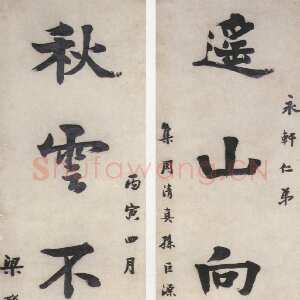 永軒仁弟
遙山向
集周清真孫巨源
秋雲不
丙寅四月
梁
Shufawang.CN